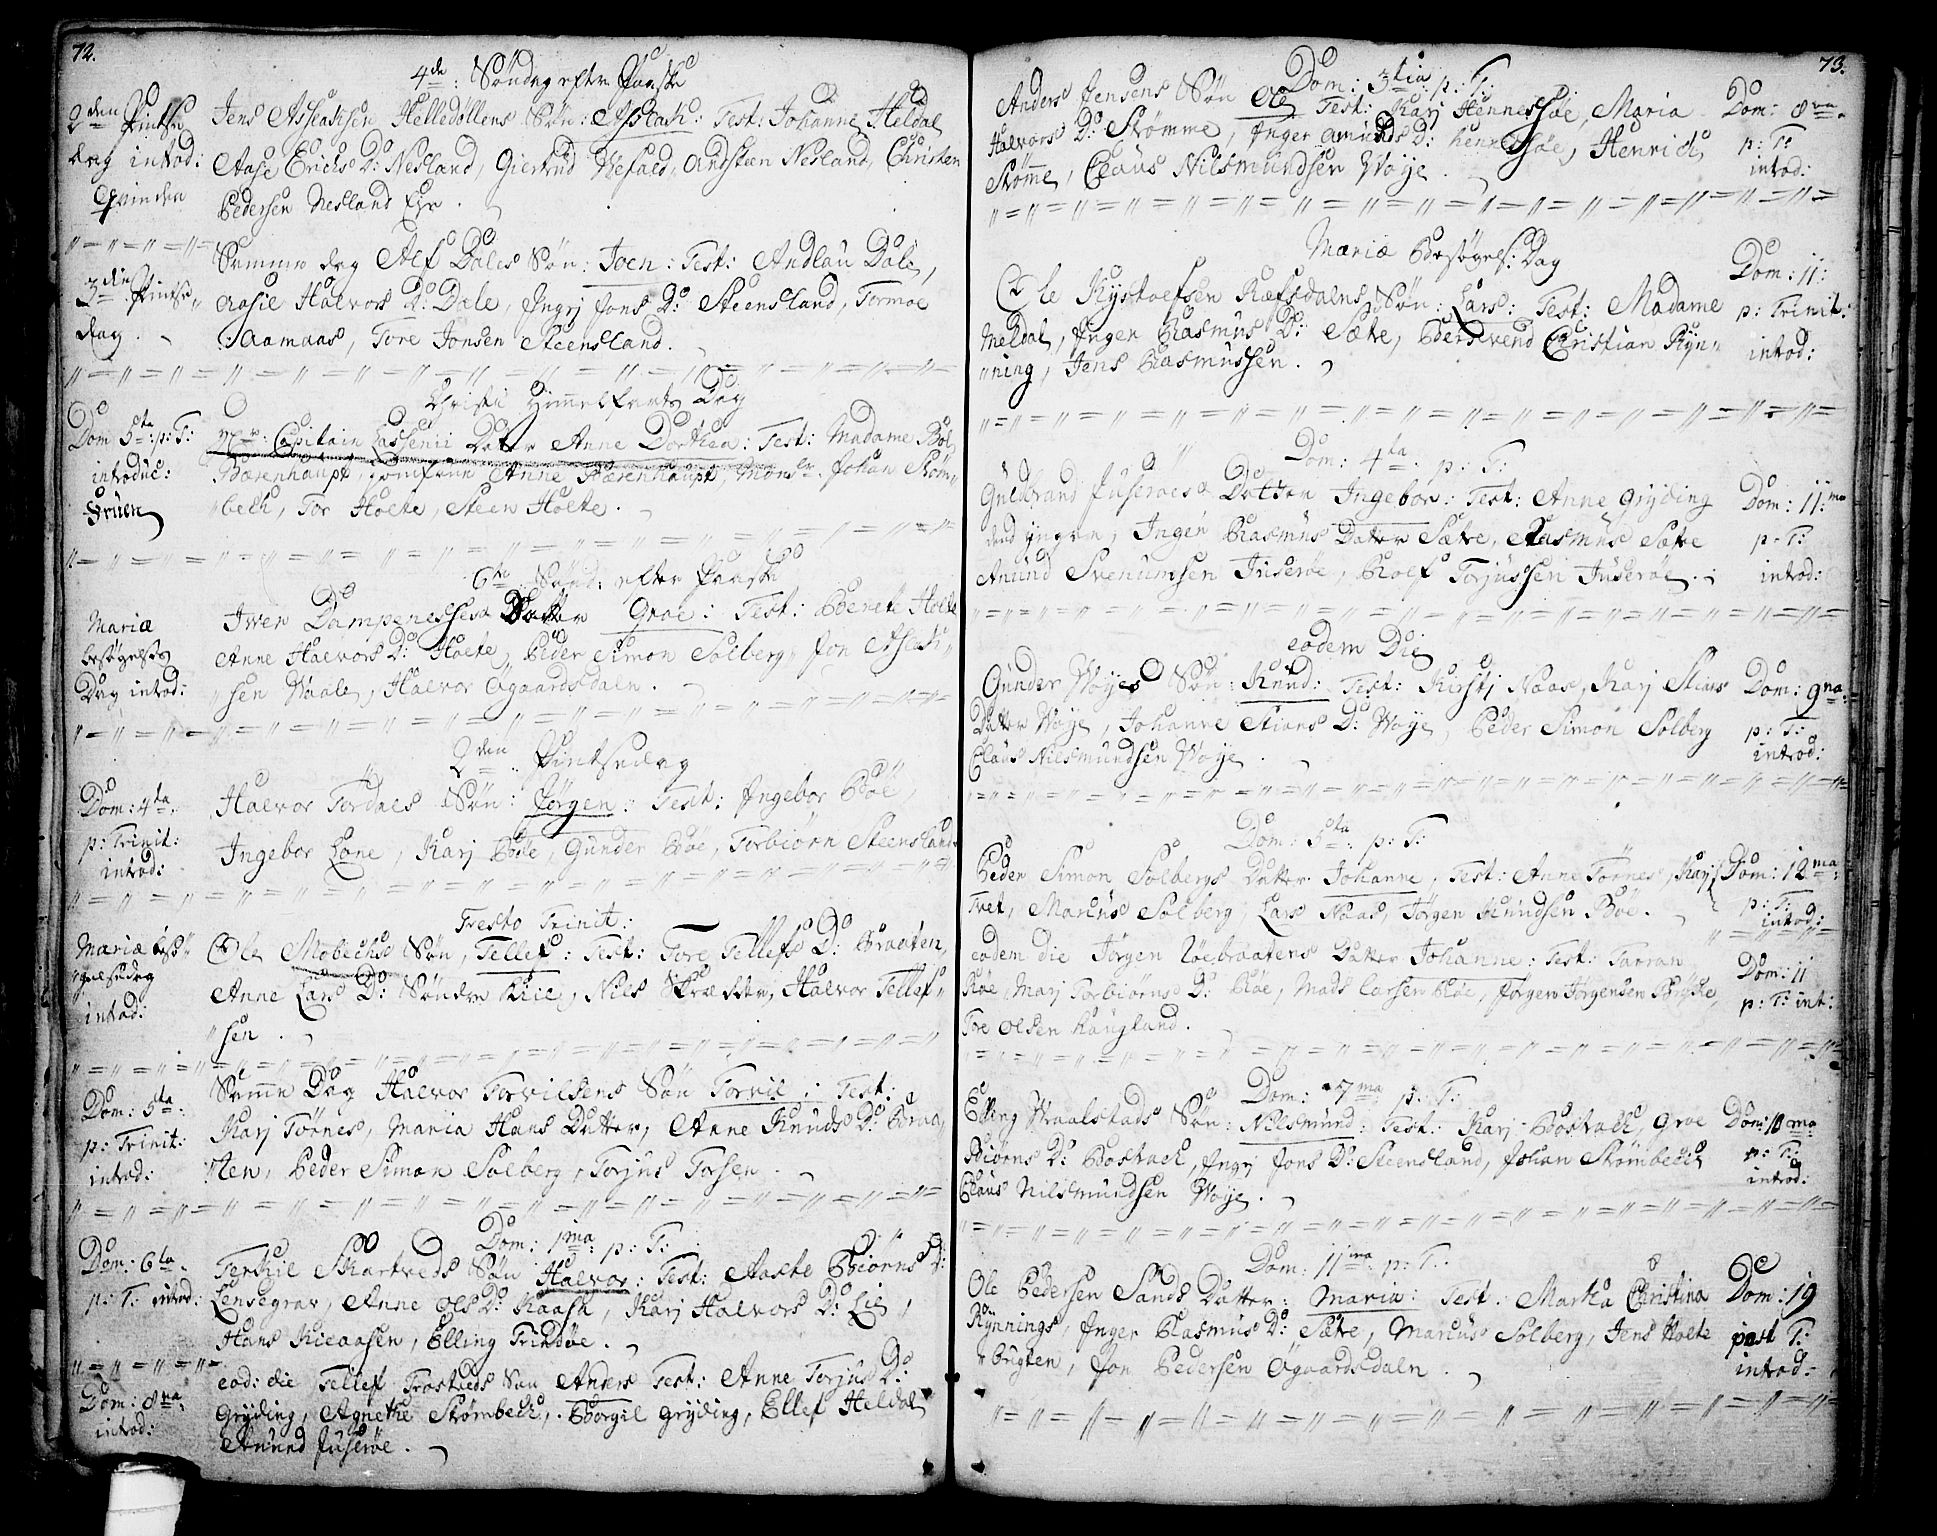 72.
4de: Søndag efter Paaske
2den Pintse
dag introd:
Qvinden
Jens Asseachsen Helledollens Søn: Asleack: Test: Johanne Heldal
Aase Erichs D: Nesland, Giertrud Wefald, Andsteen Nesland, Christen
Pedersen Nesland Eje.
3die Pintse
dag.
Samme dag Alf Dales Søn: Joen: Test: Andlau Dale,
Aasie Halvors D: Dale, Ingrj Jons D: Steensland, Tormoe
Aamaas, Tore Jonsen Steensland.
Christi Himmelfarts Dag
Dom 5ta: p: T:
introduc:
Fruen
Mr: Capitain Lassenii Dater Anne Dorthea: Test: Madame Bol
Bærenhaupt, Jomfrue Anne Bærenhaupt, Monsr. Johan Strøm-
bech, Tor Holte, Steen Holte.
6te Sønd: efter Paaske
Mariæ
besøgelses
Dag introd:
Iver Dampenesses Datter Groe: Test: Berete Holte
Anne Halvors D: Holte, Peder Simon Solberg, Jon Aslach-
sen Waale, Halvor Øgaardsdalen.
2den Pintsedag
Dom: 4ta.
p: Trinit:
introd:
Halvor Tordals Søn: Jørgen: Test: Ingebor Bøe,
Ingebor Lone, Karj Bøle, Gunder Bøe, Torbiørn Steensland
Festo Trinit:
Mariæ besø-
gelsedag
introd:
Ole Mobechs Søn, Tellef: Test: Tore Tellefs D: Braaten,
Anne Lars D: Søndre Kiie, Nils Skrædder, Halvor Tellef-
sen.
Dom: 5ta:
p: Trinit:
introd:
Samme Dag Halvor Torvildsens Søn Torvil: Test:
Karj Tørnes, Maria Hans Datter, Anne Knuds D: Borna
sten, Peder Simon Solberg, Torjus Torsen.
Dom: 1ma: p: T:
Dom: 6ta.
p: T: introd:
Terkil Skartveds Søn Halvor: Test: Aaste Biørns D:
Lensegrav, Anne Ols D: Kaasa, Karj Halvors D: Lie,
Hans Kieaasen, Elling Trindøe.
Dom: 8va:
introd:
eod: die Tellef Trostveds Søn Anders Test: Anne Torjus D:
Gryding, Agnethe Strømbech, Borgil Gryding, Ellef Heldal
Anund Juserøe.
73.
Dom: 3tia: p: T:
Anders Jensens Søn Ole Test: Karj Hennessøe, Maria
Halvors D: Strømme, Inger Amunds D: Hennessøe, Henrich
Strømme, Claus Nilsmundsen Woje.
Dom: 8va.
p: T:
introd:
Mariæ Besøgels: Dag
Ole Kystoefsen Ræfsdalens Søn: Lars: Test: Madame
Meldal, Inger Rasmus D: Sætre, Velærværd Christian Ryn-
ning, Jens Rasmussen.
Dom: 11:
p: Trinit:
introd:
Dom: 4ta. p: T:
Gulbrand Juseroes Datter Ingebor: Test: Anne Gryding
den yngre, Inger Rasmus Datter Sætre, Rasmus Sætre
Anund Svenumsen Juserøe, Roef Torjussen Juserøe.
Dom: 11:ma
p: T:
introd:
eodem Die
Gunder Wojes Søn: Knud: Test: Kirstj Naas, Karj Stians
Datter Woje, Johanne Stians D: Woje, Peder Simon Solberg
Claus Nilsmundsen Woje.
Dom: 9na.
p: T:
introd:
Dom: 5ta: p: T:
Peder Simon Solbergs Datter Johanne, Test: Anne Tørnes, Karj
Tvet, Marcus Solberg, Lars Naas, Jørgen Knudsen Bøe.
Dom: 12ma:
p: T:
introd:
eodem die Jørgen Løebraatens Datter Johanne: Test: Tarran
Røe, Marj Torbiørns D: Røe, Mads Larsen Røe, Jørgen Jørgensen Brycke,
Tore Olsen Haugland.
Dom: 11
p: T: int:
Dom: 7ma p: T:
Elling Waalstads Søn: Nilsmund: Test: Karj Bostach, Groe
Biørns D: Bostach, Ingrj Jons D: Steensland, Johan Strømbech
Claus Nilsmundsen Woje.
Dom: 10ma
p: T:
introd:
Dom: 11ma: p: T:
Ole Pedersen Sands Datter: Maria: Test: Martha Christina
Rynnings, Inger Rasmus D: Sætre, Marcus Solberg, Jens Holte
brugten, Jon Pedersen Øgaardsdalen.
Dom: 19
post T:
introd: